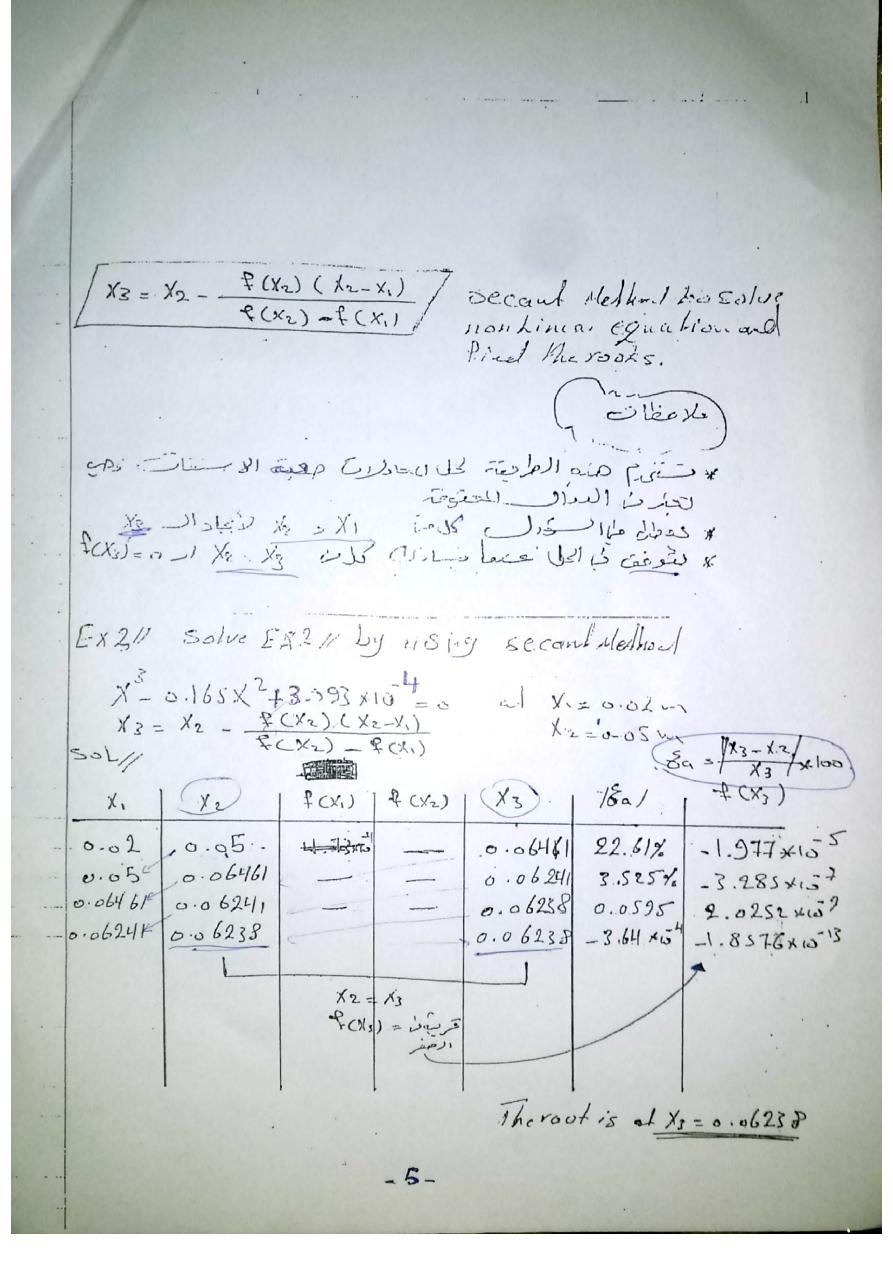 X3 = X2 - f(X2) ( X2 - X1) / f(X2) - f(X1)
Secant Method to solve
non Linear equation and
find the roots.
ملاحظات
* تستخدم هذه الطريقة لحل المعادلات صعبة الاشتقاق. وهي
* X1 و X2 لأيجاد الـ X3
* نتوقف في الحل عندما X3 X2 او f(X3) = 0
Ex 2// Solve EX2// by using secant Method
X^3 - 0.165X^2 + 3.993 x10^-4 = 0 at X1 = 0.02 m
X3 = X2 - f(X2).(X2 - X1) / f(X2) - f(X1)
X2 = 0.05 m
SOL//
Ea = |X3 - X2 / X3| x100
X1 X2 f(X1) f(X2) X3 |Ea| f(X3)
0.02 0.05 — 0.06461 22.61% -1.977x10^-5
0.05 0.06461 — — 0.06241 3.525% -3.285x10^-7
0.06461 0.06241 — — 0.06238 0.0595 2.0252x10^-9
0.06241 0.06238 0.06238 -3.64 x10^-4 -1.8576x10^-13
X2 = X3
f(X3) = قريبة من
الصفر
The root is at X3 = 0.06238
- 5 -